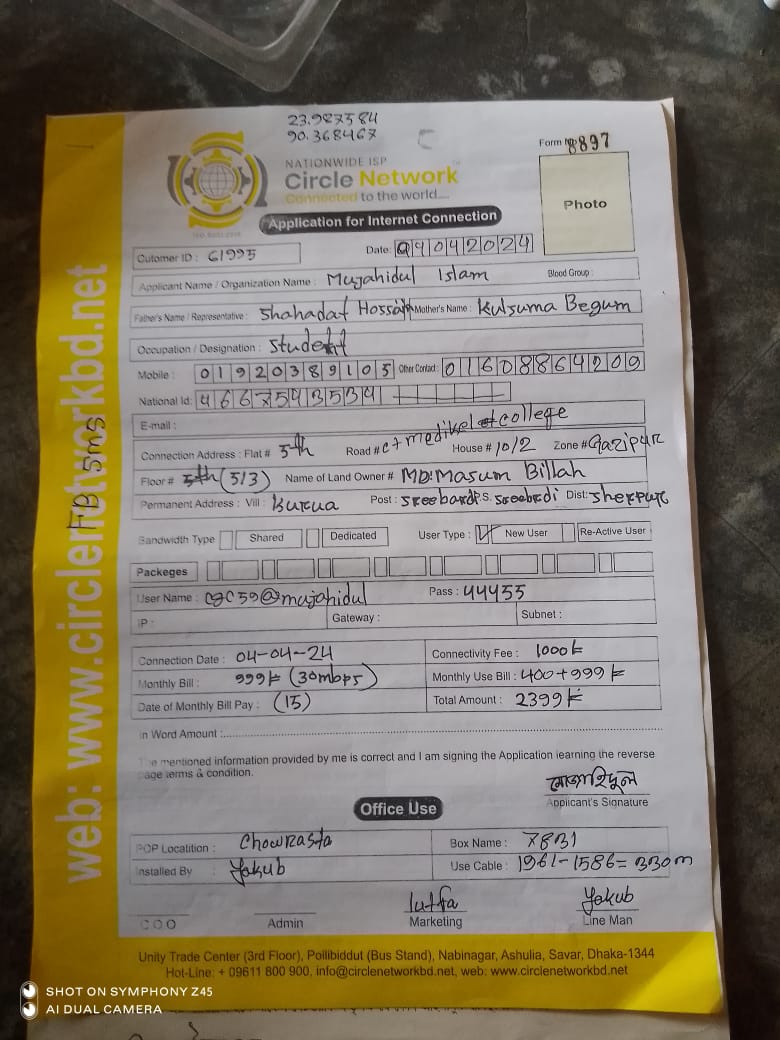 23.987584
90.368467
Form No 8897
NATIONWIDE ISP
Circle Network
Connected to the world....
Photo
Application for Internet Connection
Cutomer ID : 61995
Date: 09042024
Applicant Name / Organization Name : Mujahidul Islam Blood Group :
Father's Name / Representative : Shahadat Hossain Mother's Name : Kulsuma Begum
Occupation / Designation : Student
Mobile : 01920389105 Other Contact : 01608864209
National Id: 4667543534
E-mail :
Connection Address : Flat # 5th Road # ct medikel college House # 10/2 Zone # Gazipur
Floor # 5th (513) Name of Land Owner # MD: Masum Billah
Permanent Address : Vill : Kurua Post : Sreebardi P.S. Sreebrdi Dist: Sherpur
Bandwidth Type Shared Dedicated User Type : New User Re-Active User
Packeges
User Name : cgc59@mujahidul Pass : 44455
IP : Gateway : Subnet :
Connection Date : 04-04-24 Connectivity Fee : 1000৳
Monthly Bill : 999৳ (30mbps) Monthly Use Bill : 400+999৳
Date of Monthly Bill Pay : (15) Total Amount : 2399৳
In Word Amount :
The mentioned information provided by me is correct and I am signing the Application learning the reverse
page terms & condition.
মোজাহিদুল
Applicant's Signature
Office Use
POP Locatition : Chowrasta Box Name : 7831
Installed By Yakub Use Cable : 1961-1586= 330m
Lutfa Yakub
C O O Admin Marketing Line Man
Unity Trade Center (3rd Floor), Pollibiddut (Bus Stand), Nabinagar, Ashulia, Savar, Dhaka-1344
Hot-Line: + 09611 800 900, info@circlenetworkbd.net, web: www.circlenetworkbd.net
web: www.circlenetworkbd.net
SHOT ON SYMPHONY Z45
AI DUAL CAMERA